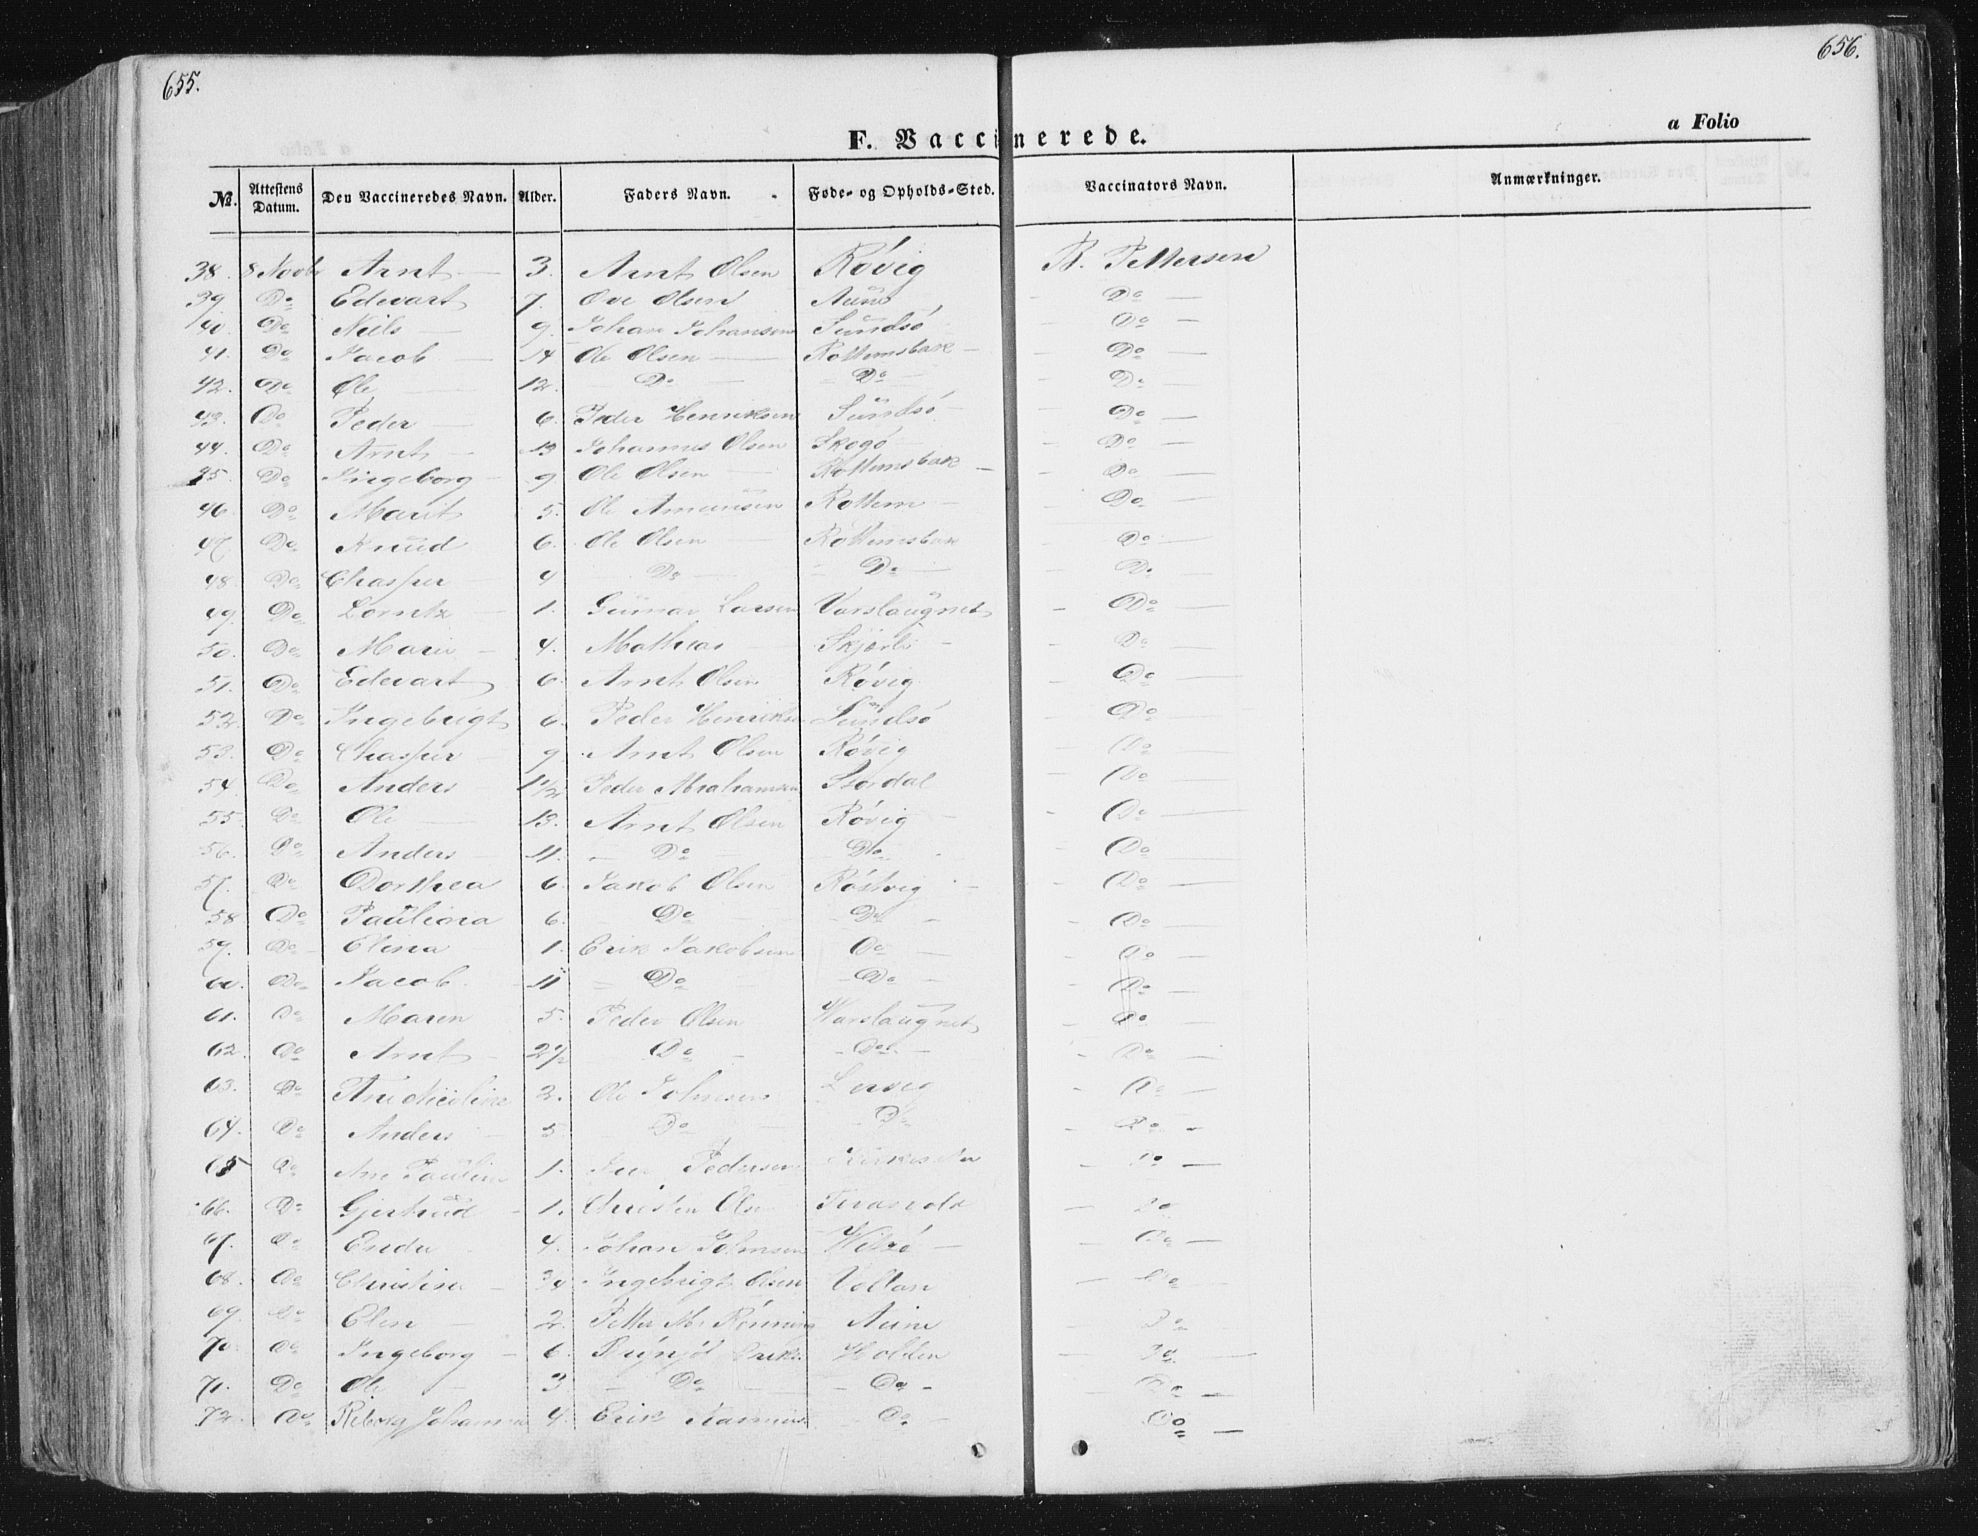 655.
656.
F. Vaccinerede.
a Folio
№. Attestens Datum. Den Vaccineredes Navn. Alder. Faders Navn. Føde- og Opholds-Sted. Vaccinators Navn. Anmærkninger.
38. 8 Novb Arnt 3. Arnt Olsen Røvig B. Pettersen
39. Do Edevart 7. Ove Olsen Aune Do
40. Do Niels 9. Johan Johansen Sundsø Do
41. Do Jacob 14 Ole Olsen Rottemsbak Do
42. Do Ole 12. Do Do Do
43. Do Peder 6. Peder Henriksen Sundsø Do
44. Do Arnt 13 Johannes Olsen Skogø Do
45. Do Ingeborg 9 Ole Olsen Rottemsbak Do
46. Do Marit 5. Ole Amunsen Rottem Do
47. Do Knud 6. Ole Olsen Rottemsbak Do
48. Do Chasper 4 Do Do Do
49. Do Lorntz 1. Gunnar Larsen Varslaugnet Do
50. Do Marie 4. Mathias Skjærli Do
51. Do Edevart 6 Arnt Olsen Røvig Do
52. Do Ingebrigt 6. Peder Henriksen Sundsø Do
53. Do Chasper 9. Arnt Olsen Røvig Do
54. Do Anders 1 1/2 Peder Abrahamsen Do
55. Do Ole 13. Arnt Olsen Røvig Do
56. Do Anders 11. Do Do Do
57. Do Dorthea 6. Jakob Olsen Røstvig Do
58 Do Pauliena 6. Do Do Do
59. Do Elina 1. Erik Jakobsen Do Do
60. Do Jacob 11 Do Do Do
61. Do Maren 5. Peder Olsen Warslaugnet Do
62. Do Arnt 2 1/2 Do Do Do
63. Do Ane Nicoline 2. Ole Johnsen Lervig Do
64. Do Anders 5 Do Do Do
65 Do Ane Pauline 1. Iver Pedersen Do
66. Do Gjertrud 1. Christen Olsen Do
67. Do Endre 4. Johan Johnsen Do
68. Do Christina 3/4 Ingebrigt Olsen Voltan Do
69. Do Elen 2. Petter Rønning Aune Do
70. Do Ingeborg 6. Holden Do
71. Do Ole 3 Do Do Do
72. Do Johanna 4. Erik Rasmus Do Do